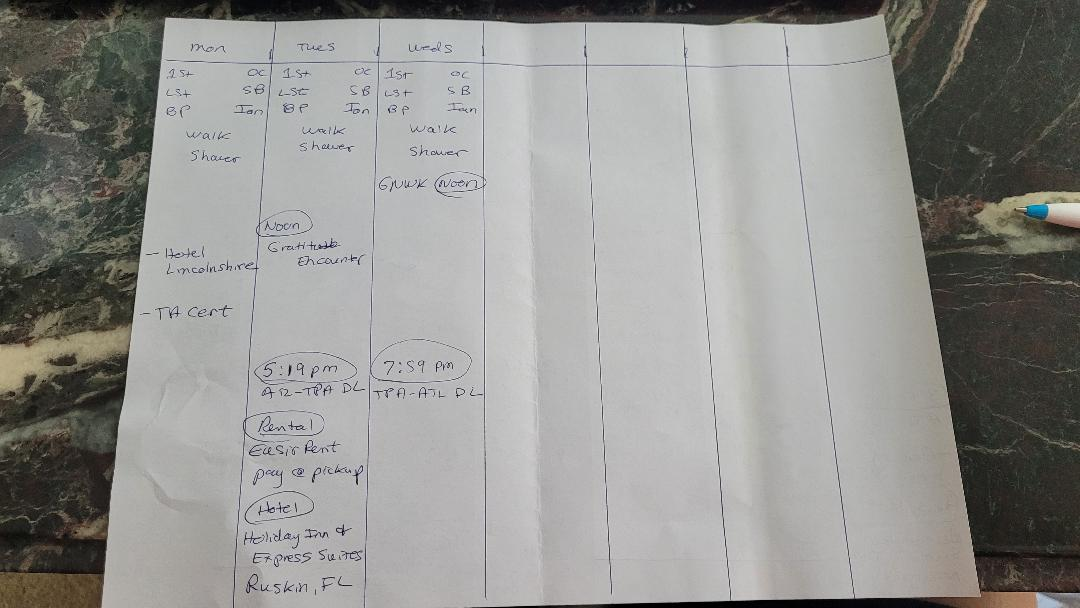 mon
1st OC
Lst SB
BP Ian
Walk
Shower
- Hotel
Lincolnshire
- TA Cert
Tues
1st OC
Lst SB
BP Ian
Walk
Shower
Noon
Gratitude
Encounter
5:19 pm
ATL-TPA DL
Rental
EasirRent
pay @ pickup
Hotel
Holiday Inn &
Express Suites
Ruskin, FL
Weds
1st OC
Lst SB
BP Ian
Walk
Shower
GNWK Noon
7:59 pm
TPA-ATL DL